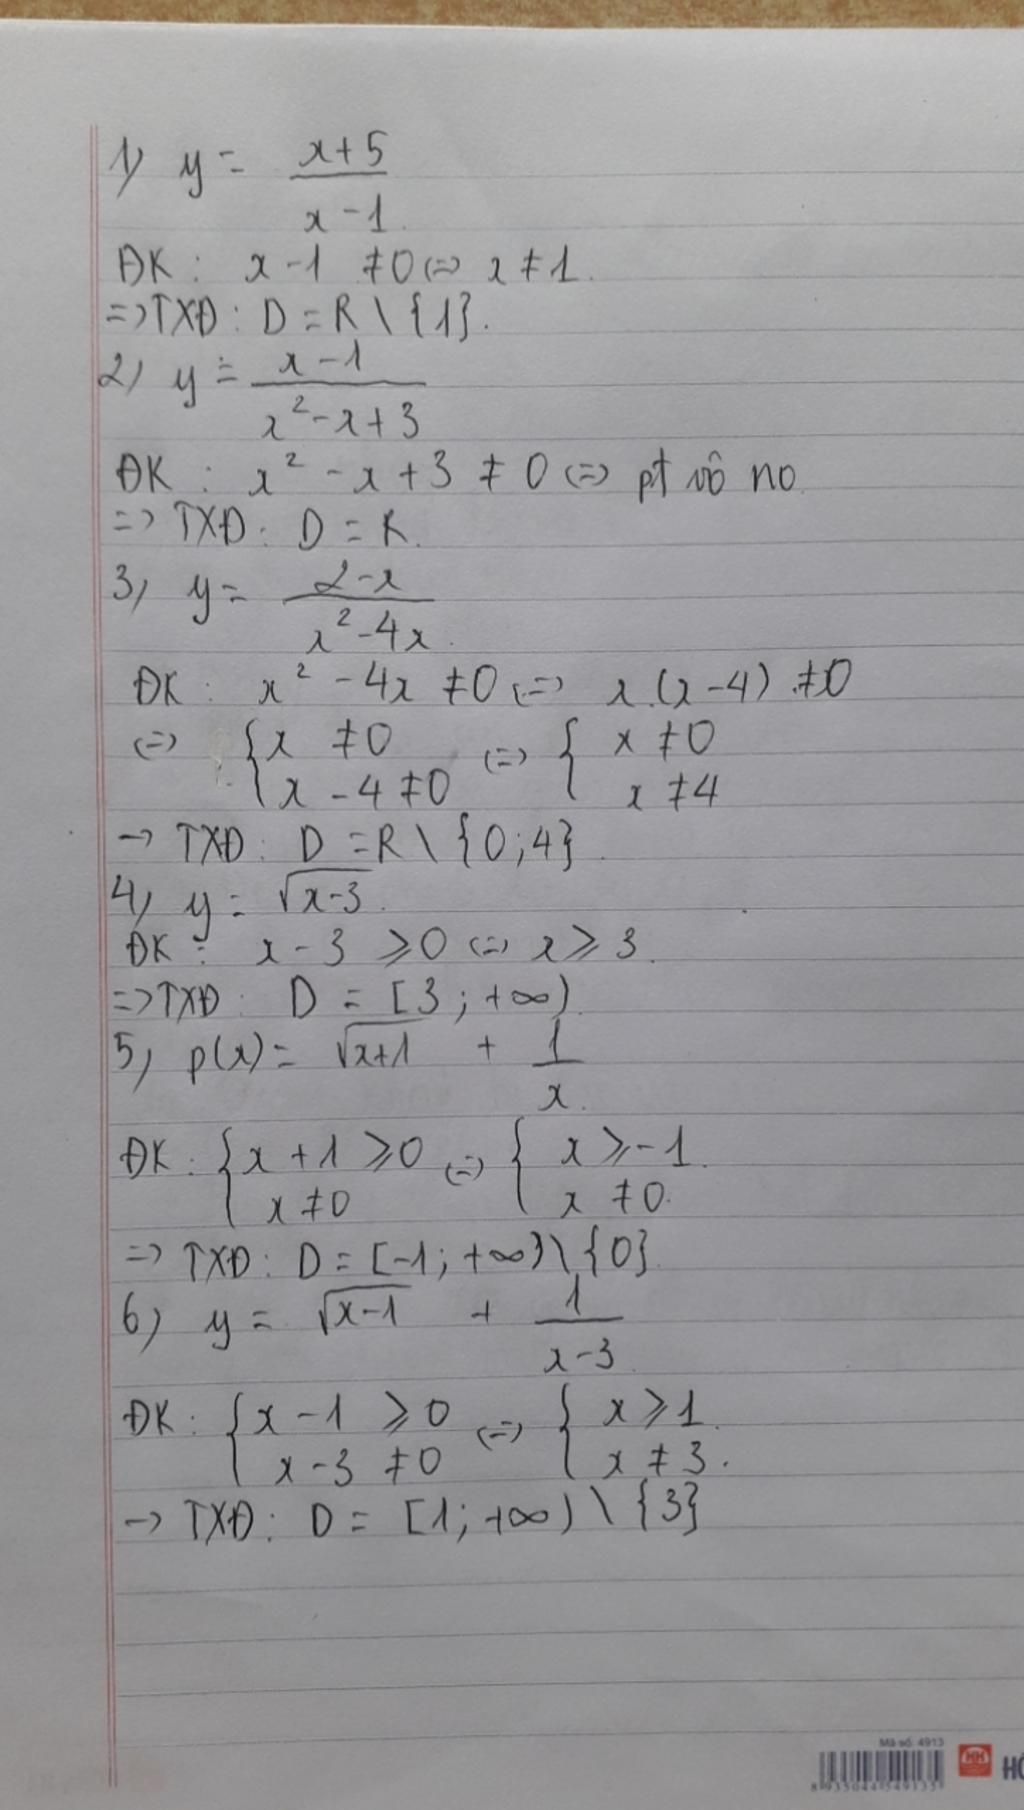 1) y = x+5
x-1.
ĐK: x-1 ≠0 <=> x≠1.
=>TXĐ: D=R\{1}.
2) y = x-1
x²-x+3
ĐK: x² - x + 3 ≠ 0 <=> pt vô no.
=> TXĐ: D = R.
3) y = 2-x
x²-4x.
ĐK: x² - 4x ≠0 <=> x.(x-4) ≠0
<=> { x ≠0 <=> { x ≠0
x - 4 ≠0 x ≠4
-> TXĐ: D =R\{0;4}.
4) y = √x-3.
ĐK: x - 3 ≥0 <=> x≥3.
=>TXĐ: D = [3; +∞).
5) p(x)= √x+1 + 1
x.
ĐK: { x + 1 ≥0 <=> { x ≥-1.
x ≠0 x ≠0.
=> TXĐ: D = [-1; +∞)\{0}.
6) y = √x-1 + 1
x-3.
ĐK: { x - 1 ≥0 <=> { x ≥1.
x-3 ≠0 x ≠3.
-> TXĐ: D = [1; +∞) \ {3}
Mã số: 4913
HH
8935044549135